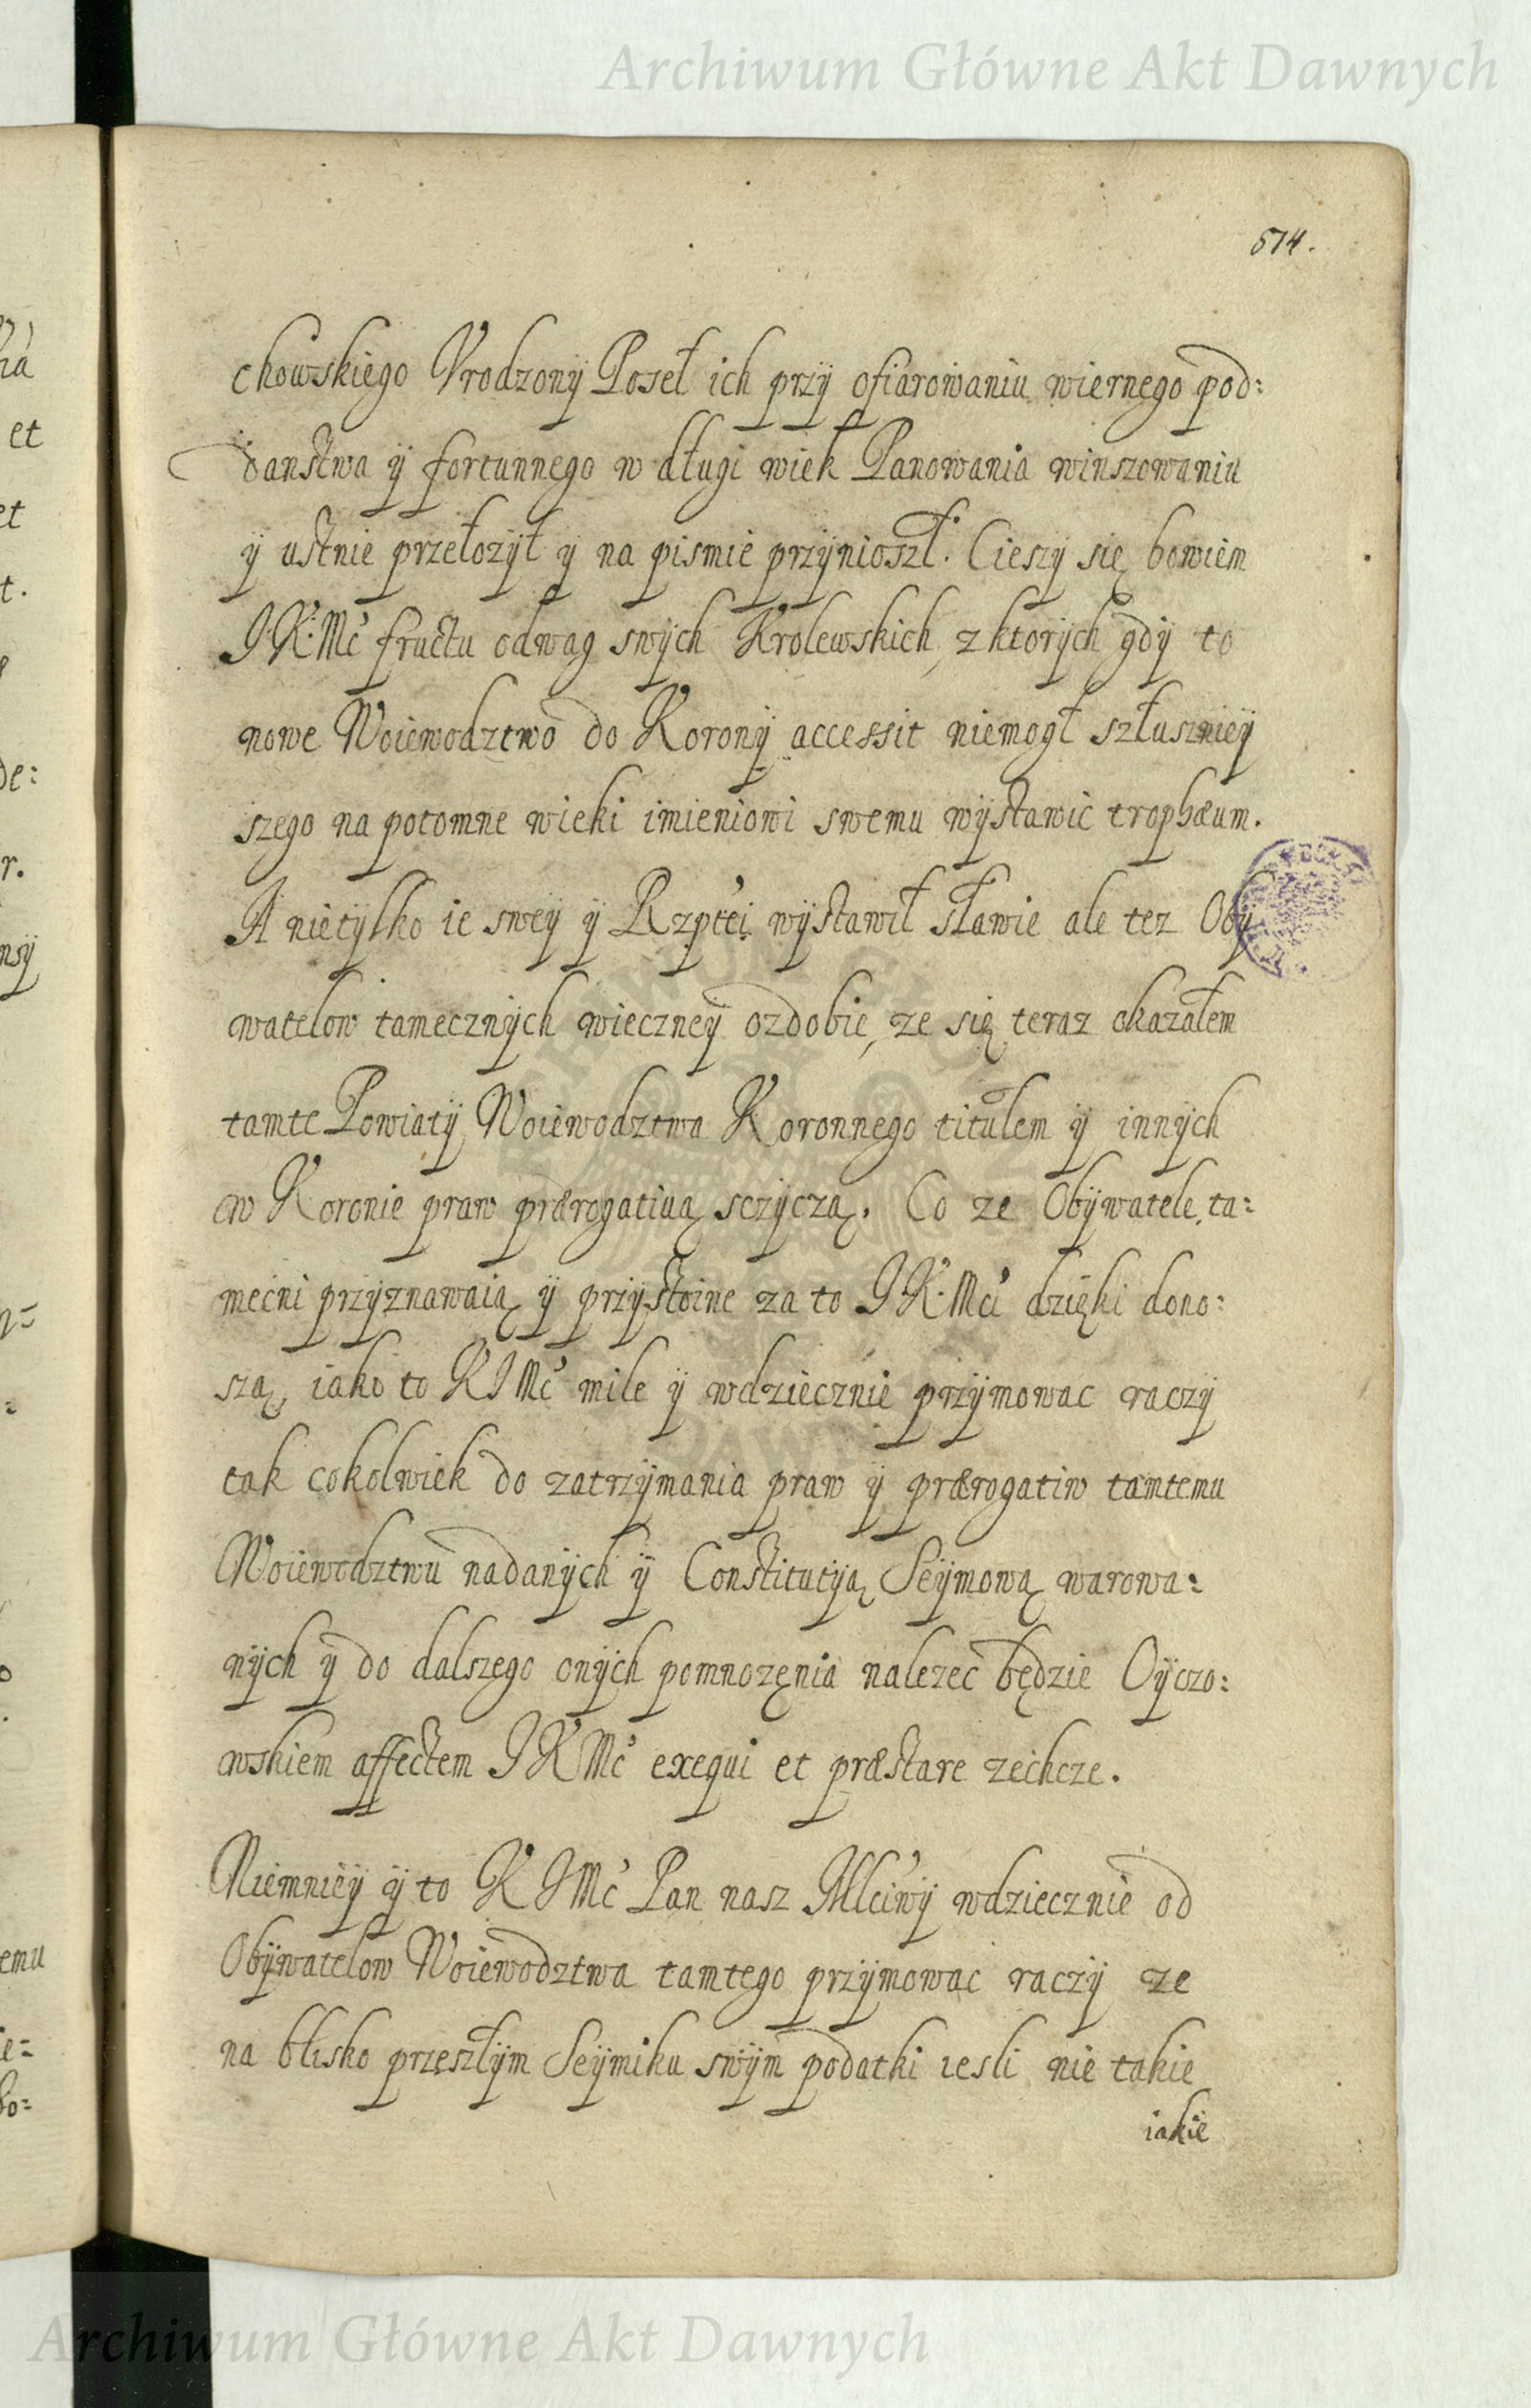 Archiwum Główne Akt Dawnych
574.
chowskiego Vrodzony Poseł ich przÿ ofiarowaniu wiernego pod:
danstwa ÿ fortunnego w długi wiek Panowania winszowaniu
ÿ ustnie przełozÿł ÿ na pismie przÿnioszł. Cieszÿ się bowiem
J.K.Mć fructu odwag swÿch Krolewskich, z ktorÿch gdÿ to
nowe Woiewodztwo do Koronÿ accessit niemogł szłusznieÿ
szego na potomne wieki imieniowi swemu wÿstawic trophæum.
A nietÿlko ie sweÿ ÿ Rzptei wÿstawił sławie ale tez Obÿ
watelow tamecznÿch wieczneÿ ozdobie, ze się teraz okazałem
tamte Powiatÿ Woiewodztwa Koronnego titułem ÿ innÿch
w Koronie praw prærogatiuą sczÿczą. Co ze Obÿwatele ta:
mećni przÿznawaią ÿ przÿstoine za to JK.Mći dzięki dono:
szą, iako to KJMć mile ÿ wdziecznie przÿmowac raczÿ
tak cokolwiek do zatrzÿmania praw ÿ prærogatiw tamtemu
Woiewodztwu nadanÿch ÿ Constitutÿą Seÿmową warowa:
nÿch ÿ do dalszego onÿch pomnozęnia nalezec będzie Oÿczo:
wskiem affectem JKMć exequi et præstare zechcze.
Niemnieÿ ÿ to KJMć Pan nasz Młciwÿ wdziecznie od
Obÿwatelow Woiewodztwa tamtego przÿmowac raczÿ ze
na blisko przeszłÿm Seÿmiku swÿm podatki iesli nie takie
iakie
Archiwum Główne Akt Dawnych